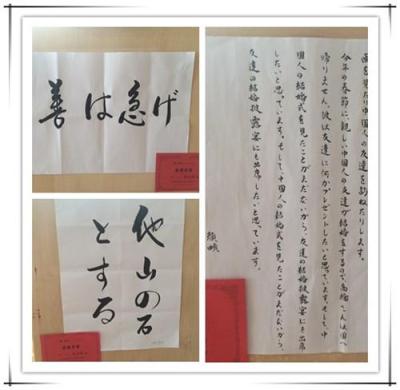 善は急げ
他山の石
とする
画を見たり中国人の友達を訪ねたりします。
今年の春節に、親しい中国人の友達が結婚をするので、高橋さんは国へ
帰りません。彼は友達に何かプレゼントしたいと思っています。そして、中
国人の結婚式を見たことがまだないから、友達の結婚披露宴にも出席
したいと思っています。そして、中国人の結婚式を見たことがまだないから、
友達の結婚披露宴にも出席したいと思っています。